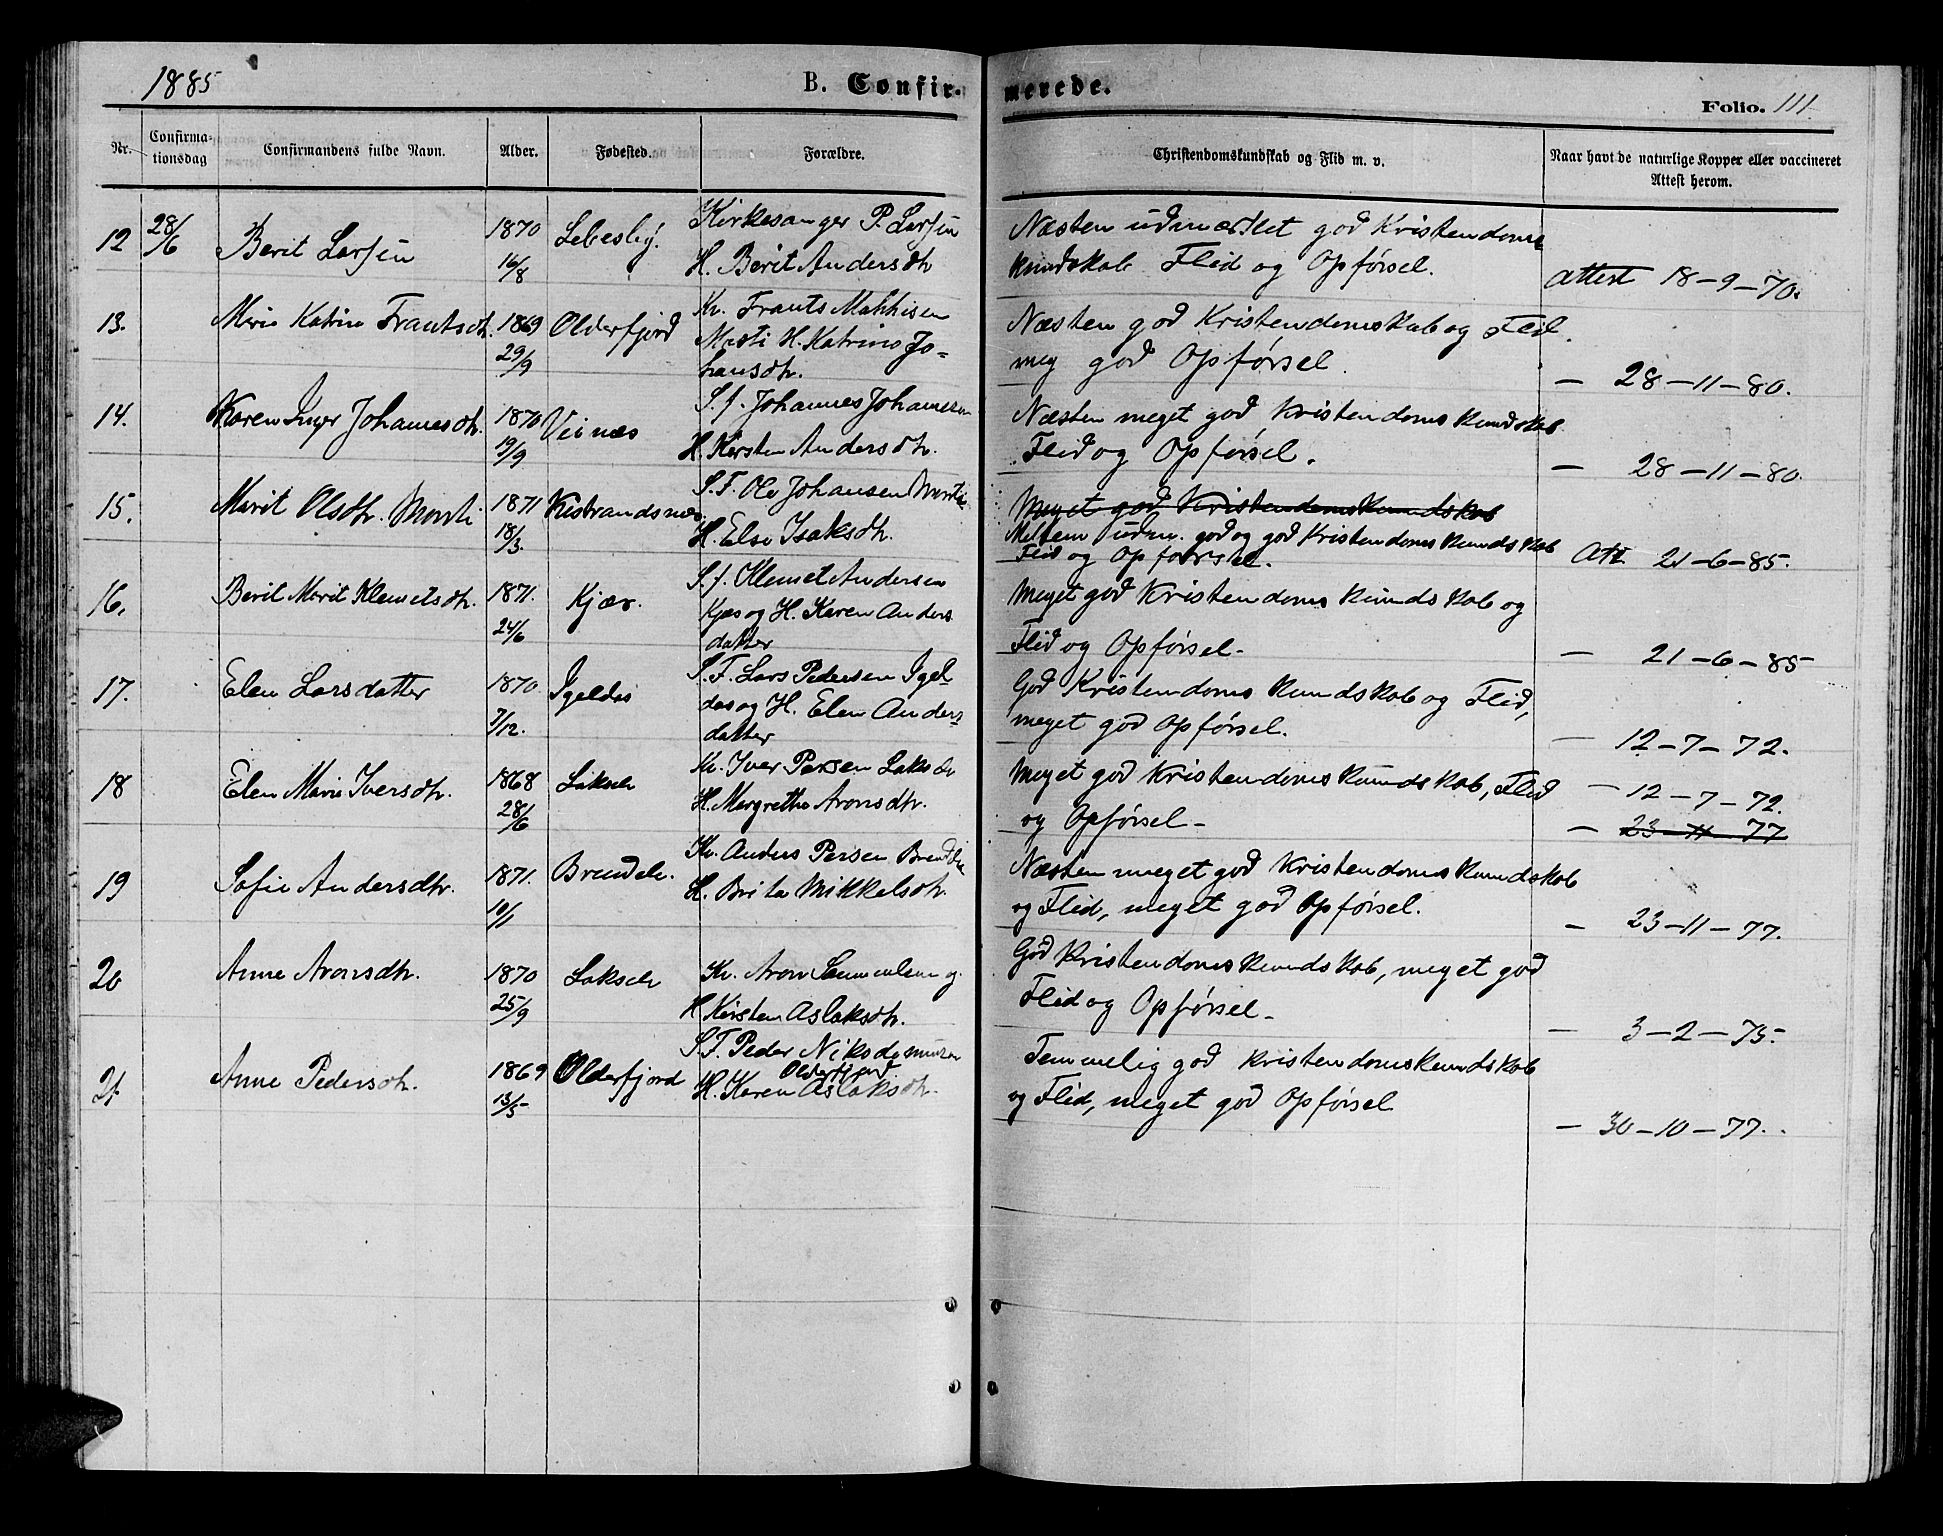 1885
B. Confir- merede.
Folio. 111.
Nr.
Confirma-
tionsdag
Confirmandens fulde Navn.
Alder.
Fødested.
Forældre.
Christendomskundskab og Flid m. v.
Naar havt de naturlige Kopper eller vaccineret
Attest herom.
12 28/6 Berit Larsen 1870 16/8 Lebesby.
Kirkesanger P. Larsen
H. Berit Andersdtr
Næsten udmærket god Kristendoms
kundskab Flid og Opførsel.
Attest 18-9-70.
13. Marie Katrine Frantsdtr. 1869 29/9 Olderfjord
Kv. Frants Mathisen
Masti H. Katrine Jo-
hansdtr.
Næsten god Kristendomskab og Flid
meg god Opførsel.
— 28-11-80.
14. Karen Inger Johannesdtr. 1870 19/9 Veinæs
S.f. Johannes Johannesen
H. Kersten Andersdtr.
Næsten meget god Kristendomskundskab
Flid og Opførsel.
— 28-11-80.
15. Marit Olsdtr. 1871 18/3. Kistrandsnæs
S.F. Ole Johansen
H. Else Isaksdtr.
Meget god Kristendomskundskab
Mellem udm. god og god Kristendomskundskab
Flid og Opførsel.
Att 21-6-85.
16. Berit Marit Klemetsdtr. 1871. 24/6 Kjæs.
S.f. Klemet Andersen
Kjæs og H. Karen Anders
datter
Meget god Kristendomskundskab og
Flid og Opførsel-
— 21-6-85
17. Elen Larsdatter 1870 7/12. Igeldas
S.F. Lars Pedersen Igel-
das og H. Elen Anders
datter
God Kristendomskundskab og Flid,
meget god Opførsel.
— 12-7-72.
18 Elen Marie Iversdtr. 1868 28/6 Lakselv
Kv. Iver Persen Lakselv
H. Margrethe Aronsdtr.
Meget god Kristendomskundskab, Flid
og Opførsel-
— 12-7-72.
— 23-11-77
19 Sofie Andersdtr. 1871. 10/1 Brendelv.
Kv. Anders Persen Brendelv
H. Brita Mikkelsdtr.
Næsten meget god Kristendomskundskab
og Flid, meget god Opførsel.
— 23-11-77.
20 Anne Aronsdtr. 1870 25/9 Lakselv
Kv. Aron Sammulsen og
H Kirsten Aslaksdtr.
God Kristendomskundskab, meget god
Flid og Opførsel-
— 3-2-75.
21 Anne Pedersdtr. 1869 13/5 Olderfjord
S.F. Peder Nikodemusen
Olderfjord
H. Karen Aslaksdtr.
Temmelig god Kristendomskundskab
og Flid, meget god Opførsel
— 30-10-77.